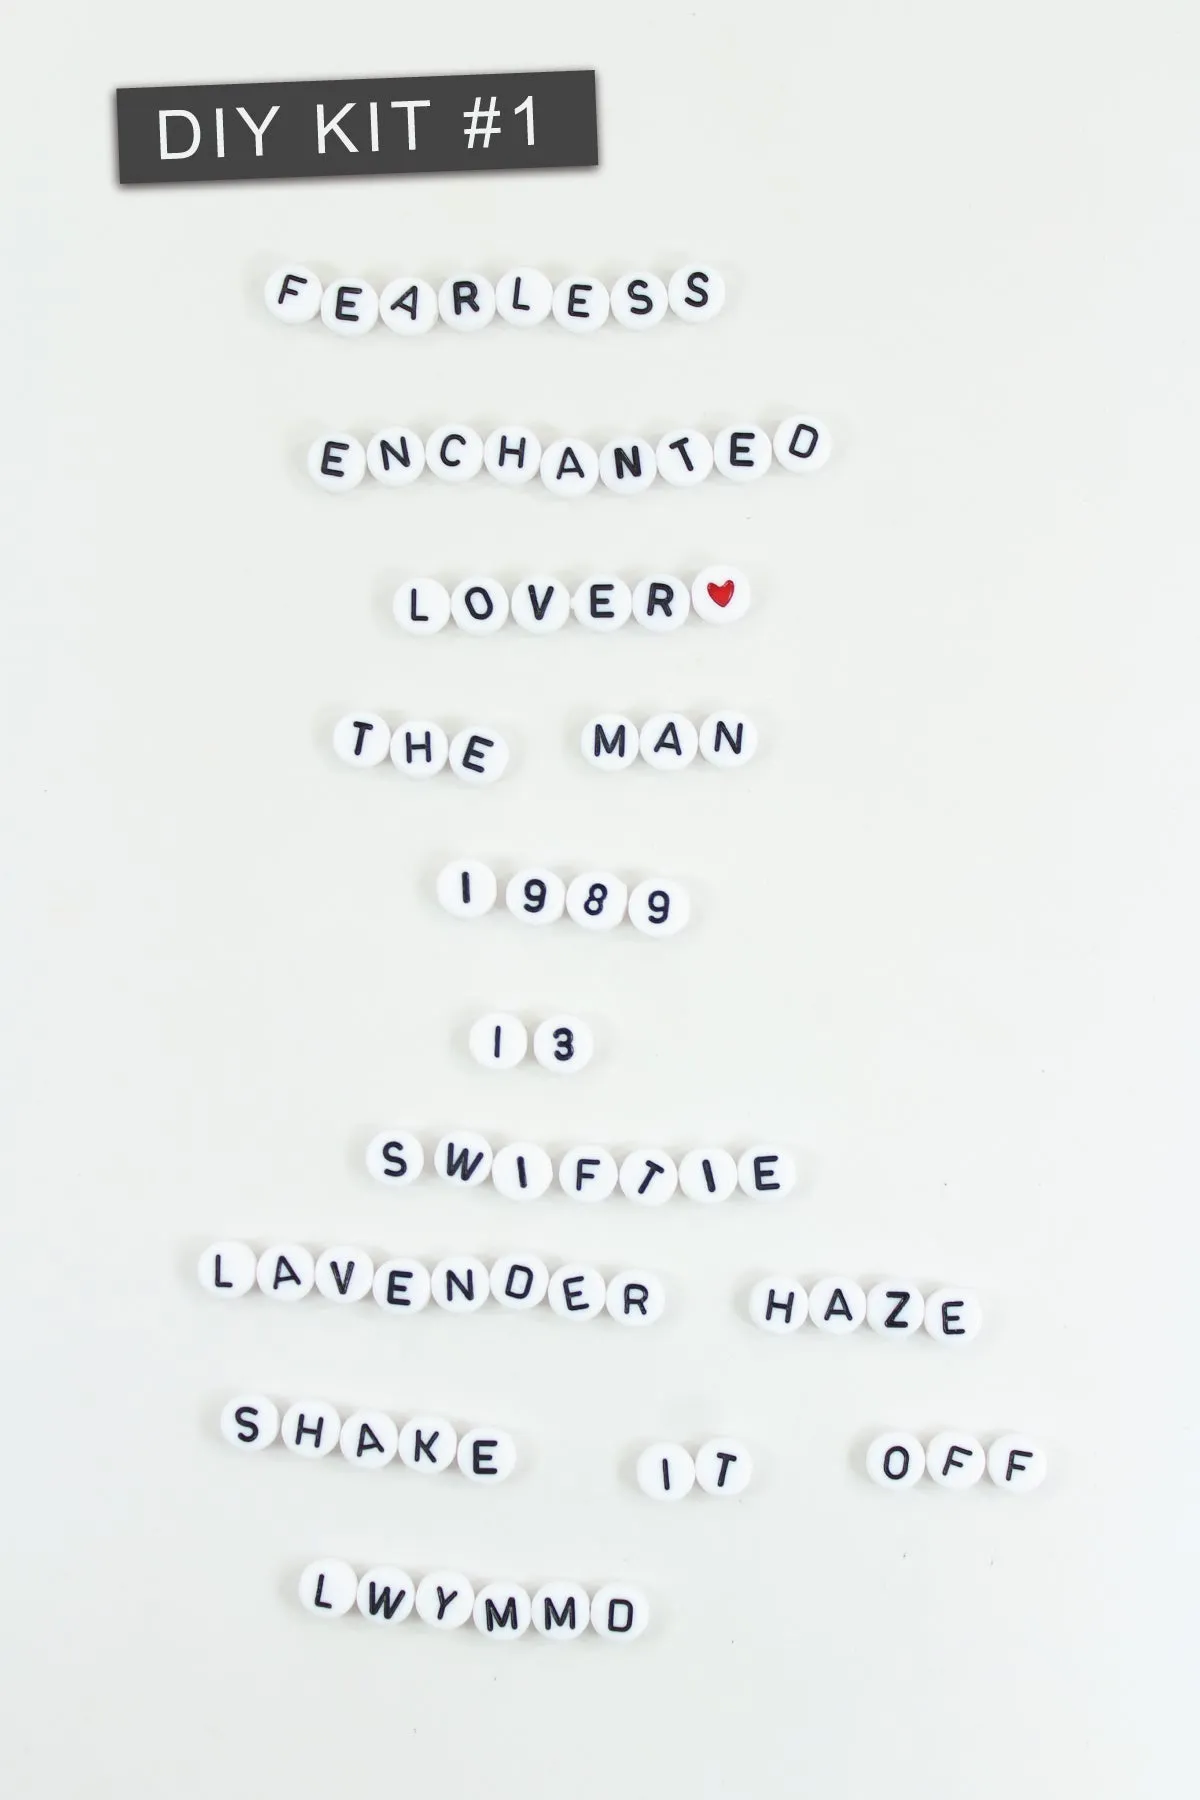 DIY KIT #1
FEARLESS
ENCHANTED
LOVER❤
THE MAN
1989
13
SWIFTIE
LAVENDER HAZE
SHAKE IT OFF
LWYMMD